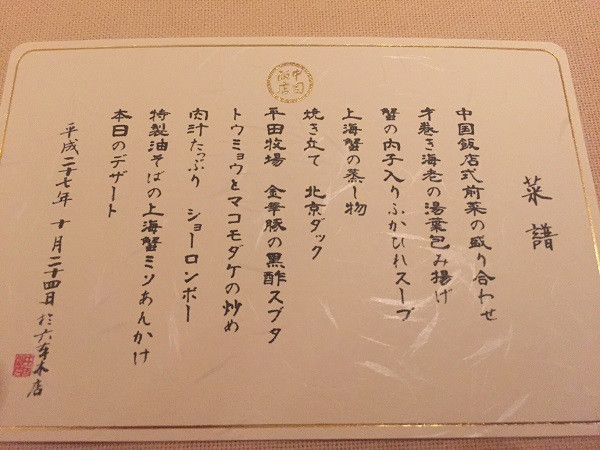 中国飯店
菜譜
中国飯店式前菜の盛り合わせ
才巻き海老の湯葉包み揚げ
蟹の内子入りふかひれスープ
上海蟹の蒸し物
焼き立て 北京ダック
平田牧場 金華豚の黒酢スブタ
トウミョウとマコモダケの炒め
肉汁たっぷり ショーロンポー
特製油そばの上海蟹ミソあんかけ
本日のデザート
平成二十七年 十月二十四日 於六本木店